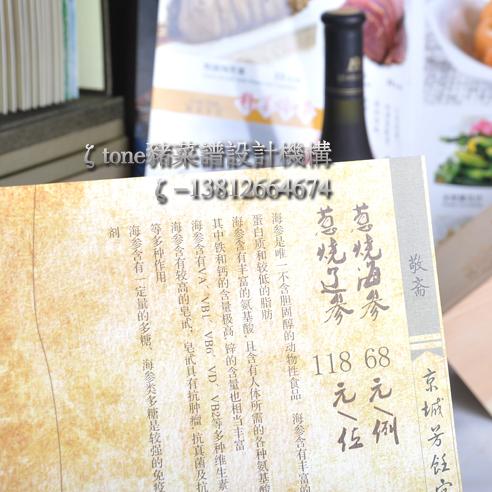 ζ tone豬菜譜設計機構
ζ -13812664674
敬斋
京城芳飪
葱燒海參 68元/例
葱燒辽參 118元/位
海参是唯一不含胆固醇的动物性食品 海参含有丰富的
蛋白质和较低的脂肪
海参含有丰富的氨基酸 且含有人体所需的各种氨基酸
其中铁和钙的含量极高 锌的含量也相当丰富
海参含有VA、VB1、VB6、VD、VB2等多种维生素
海参含有较高的皂甙，皂甙具有抗肿瘤 抗真菌及抗
等多种作用
海参含有一定量的多糖、海参类多糖是较强的免疫
剂